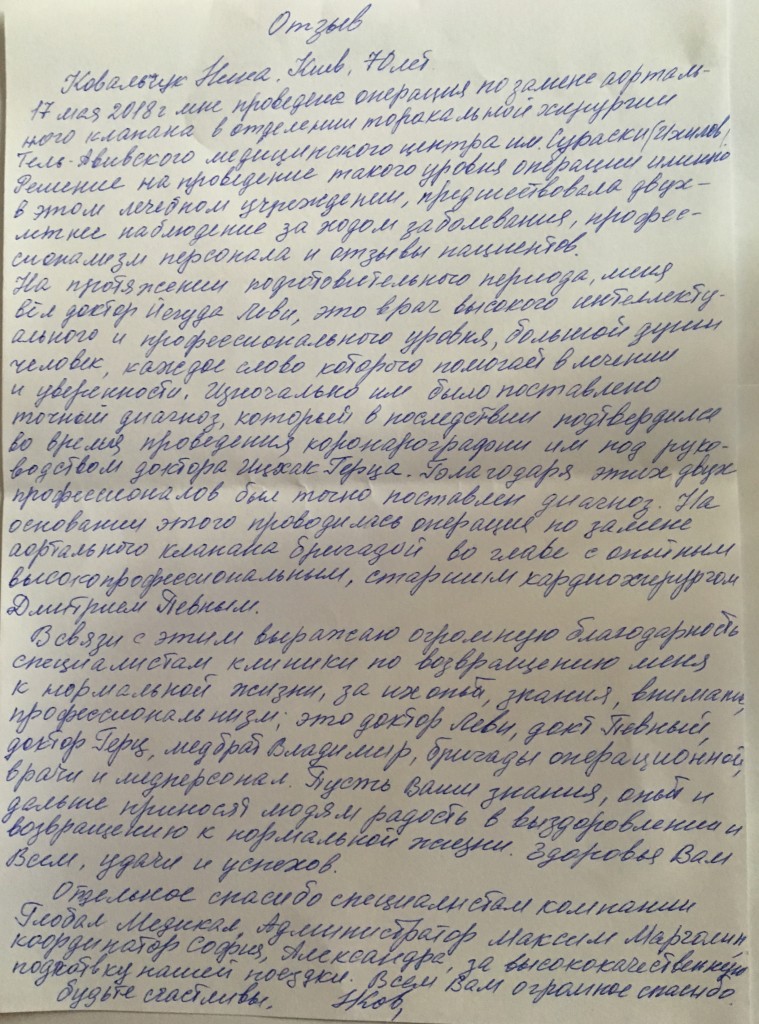 Отзыв
Ковальчук Нина. Киев, 70 лет
17 мая 2018г мне проведена операция по замене аорталь-
ного клапана в отделении торакальной хирургии
Тель-Авивского медицинского центра им. Сураски (Ихилов).
Решение на проведение такого уровня операции именно
в этом лечебном учреждении, предшествовала двух-
летнее наблюдение за ходом заболевания, профес-
сионализм персонала и отзывы пациентов.
На протяжении подготовительного периода, меня
вёл доктор Йегуда Леви, это врач высокого интеллекту-
ального и профессионального уровня, большой души
человек, каждое слово которого помогает в лечении
и уверенности. Изночально им было поставлено
точный диагноз, который в последствии подтвердился
во время проведения коронарографии им под руко-
водством доктора Ицхак Герца. Благодаря этих двух
профессионалов был точно поставлен диагноз. На
основании этого проводилась операция по замене
аортального клапана бригадой во главе с опытным
высокопрофессиональным, старшим кардиохирургом
Дмитрием Певным.
В связи с этим выражаю огромную благодарность
специалистам клиники по возвращению меня
к нормальной жизни, за их опыт, знания, внимание,
профессиональнизм; это доктор Леви, докт Певный,
доктор Герц, медбрат Владимир, бригады операционной,
врачи и медперсонал. Пусть Ваши знания, опыт и
дальше приносят людям радость в выздоровлении и
возвращению к нормальной жизни. Здоровья Вам
Всем, удачи и успехов.
Отдельное спасибо специалистам компании
Глобал Медикал, Администратор Максим Марголин,
координатор София, Александра, за высококачественную
подготвку нашей поездки. Всем Вам огромное спасибо.
будьте счастливы. НКов,